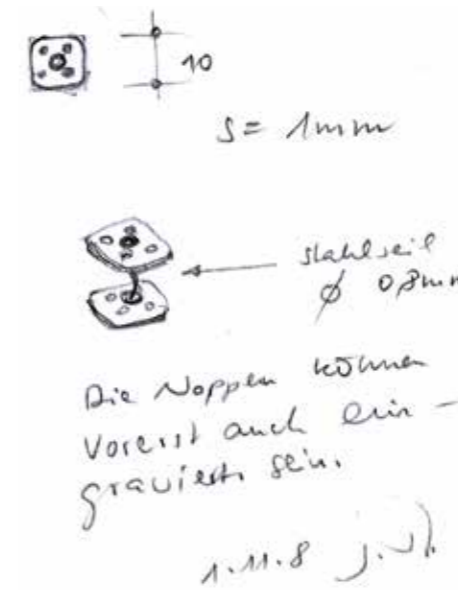 10
S = 1mm
Stahlseil
ø 0,8mm
Die Noppen können
Vorerst auch ein-
graviert sein.
1.11.8 J.